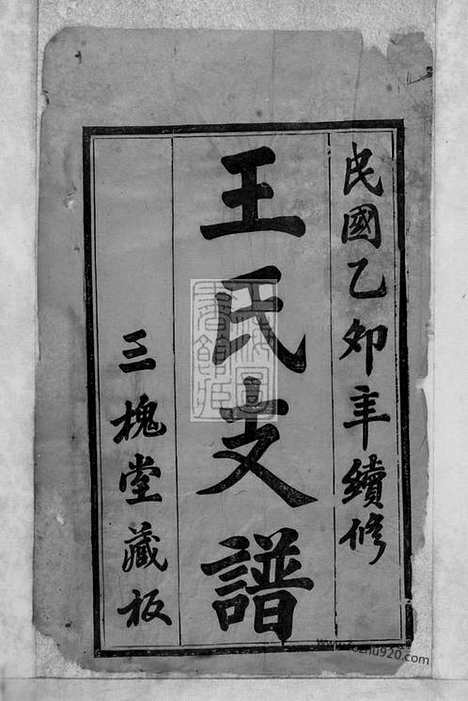 民國乙卯年續修
王氏支譜
三槐堂藏板